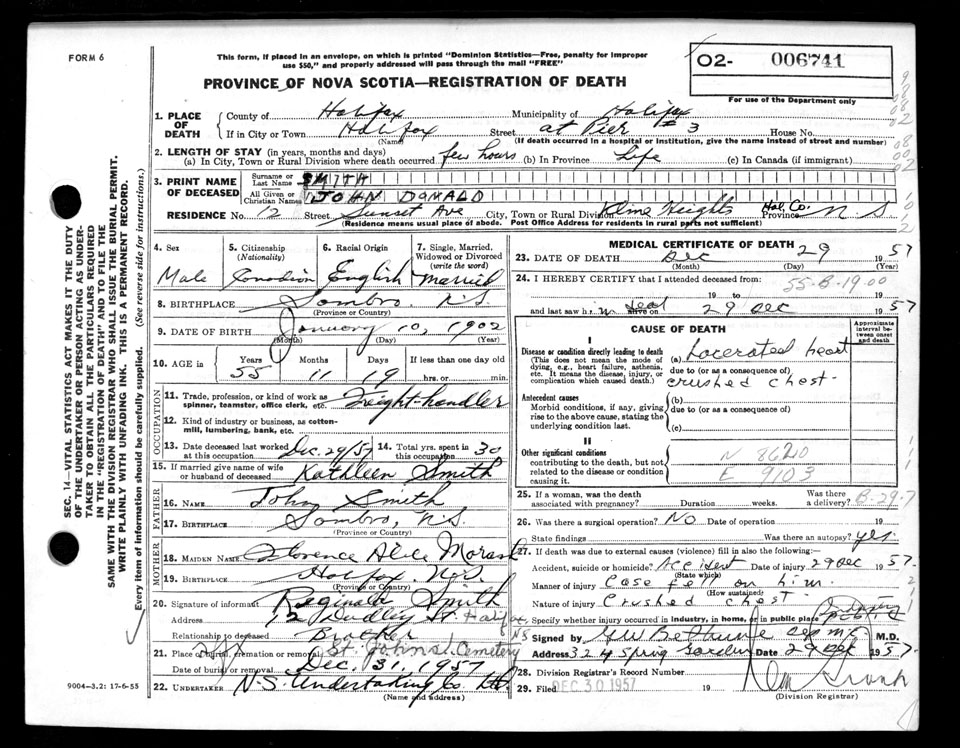 FORM 6
This form, if placed in an envelope, on which is printed "Dominion Statistics—Free, penalty for improper
use $50," and properly addressed will pass through the mail "FREE"
PROVINCE OF NOVA SCOTIA—REGISTRATION OF DEATH
O2- 006741
For use of the Department only
1. PLACE OF DEATH
County of Halifax Municipality of Halifax
If in City or Town Halifax Street at Pier #3 House No.
(Name) (If death occurred in a hospital or institution, give the name instead of street and number)
2. LENGTH OF STAY (in years, months and days)
(a) In City, Town or Rural Division where death occurred few hours (b) In Province Life (c) In Canada (if immigrant)
3. PRINT NAME OF DECEASED
Surname or Last Name SMITH
All Given or Christian Names JOHN DONALD
RESIDENCE No. 12 Street Sunset Ave City, Town or Rural Division Heights Hal. Co. Province N S
(Residence means usual place of abode. Post Office Address for residents in rural parts not sufficient)
SEC. 14—VITAL STATISTICS ACT MAKES IT THE DUTY
OF THE UNDERTAKER OR PERSON ACTING AS UNDER-
TAKER TO OBTAIN ALL THE PARTICULARS REQUIRED
IN THE "REGISTRATION OF DEATH" AND TO FILE THE
SAME WITH THE DIVISION REGISTRAR WHO SHALL ISSUE THE BURIAL PERMIT.
WRITE PLAINLY WITH UNFADING INK. THIS IS A PERMANENT RECORD.
Every item of information should be carefully supplied. (See reverse side for instructions.)
4. Sex Male
5. Citizenship (Nationality) Canadian
6. Racial Origin English
7. Single, Married, Widowed or Divorced (write the word) Married
8. BIRTHPLACE Sambro N.S
(Province or Country)
9. DATE OF BIRTH January 10, 1902
(Month) (Day) (Year)
10. AGE Years 55 Months 11 Days 19 If less than one day old hrs. or min.
11. Trade, profession, or kind of work as spinner, teamster, office clerk, etc. Freight-handler
12. Kind of industry or business, as cotton-mill, lumbering, bank, etc.
13. Date deceased last worked at this occupation Dec. 29/57 14. Total yrs. spent in this occupation 30
15. If married give name of wife or husband of deceased Kathleen Smith
FATHER
16. NAME John Smith
17. BIRTHPLACE Sambro, N.S.
(Province or Country)
MOTHER
18. MAIDEN NAME Florence Alice Morash
19. BIRTHPLACE Halifax N.S.
(Province or Country)
20. Signature of informant Reginald Smith
Address 72 Dudley St. Halifax NS
Relationship to deceased Brother
21. Place of burial, cremation or removal St. Johns Cemetery
Date of burial or removal Dec. 31, 1957
22. UNDERTAKER N.S. Undertaking Co Ltd
(Name and address)
9004-3.2: 17-6-55
MEDICAL CERTIFICATE OF DEATH
23. DATE OF DEATH Dec 29 1957
(Month) (Day) (Year)
24. I HEREBY CERTIFY that I attended deceased from: 55-B-19.00
19 to 19
and last saw h im dead alive on 29 Dec 1957
CAUSE OF DEATH
Approximate interval between onset and death
I
Disease or condition directly leading to death
(This does not mean the mode of dying, e.g., heart failure, asthenia, etc. It means the disease, injury, or complication which caused death.)
(a) Lacerated heart
due to (or as a consequence of)
crushed chest.
Antecedent causes
Morbid conditions, if any, giving rise to the above cause, stating the underlying condition last.
(b)
due to (or as a consequence of)
(c)
II
Other significant conditions
contributing to the death, but not related to the disease or condition causing it.
N 8620
E 9103
25. If a woman, was the death associated with pregnancy? Duration weeks. Was there a delivery? B-29-7
26. Was there a surgical operation? No Date of operation 19
State findings Was there an autopsy? yes.
27. If death was due to external causes (violence) fill in also the following:—
Accident, suicide or homicide? Accident Date of injury 29 Dec 1957
(State which)
Manner of injury Case fell on him.
(How sustained)
Nature of injury Crushed chest.
Specify whether injury occurred in industry, in home, or in public place
Signed by M.D.
Address 324 Spring Garden Date 29 Dec 1957
28. Division Registrar's Record Number
29. Filed DEC 30 1957 19
(Division Registrar)